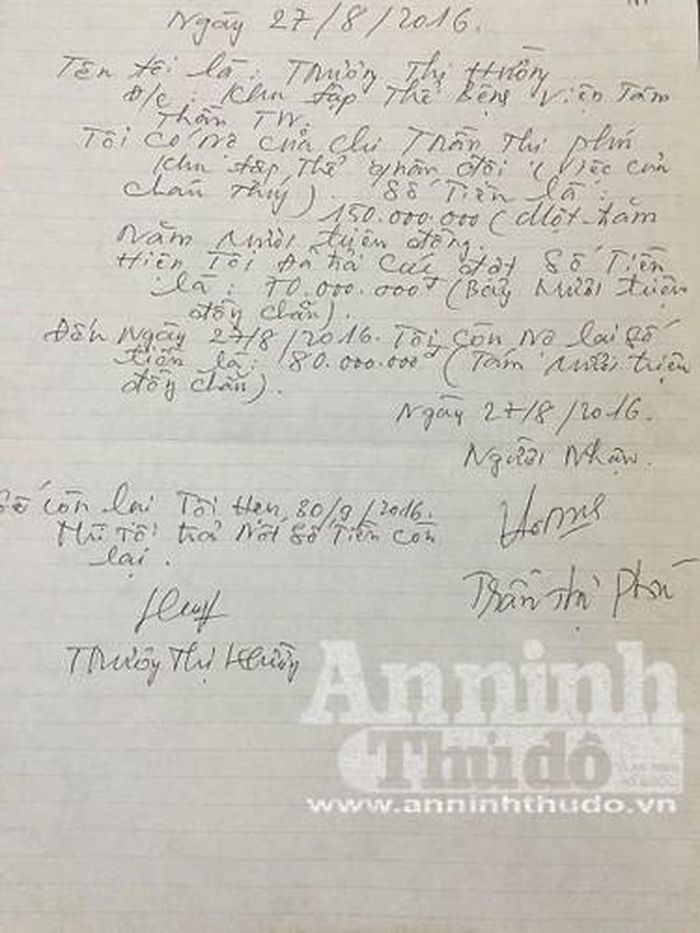 Ngày 27/8/2016.
Tên tôi là: Trương Thị Hường
Đ/c: Khu tập thể Bệnh Viện Tâm
Thần TW.
Tôi có nợ của chị Trần Thị Phú
Khu tập thể quân đội (việc của
cháu Thuý) Số Tiền là:
150.000.000 (Một trăm
Năm mươi triệu đồng.
Hiện Tôi đã trả cứu đợt Số Tiền
là: 70.000.000đ (Bảy Mươi triệu
đồng chẵn).
Đến Ngày 27/8/2016. Tôi còn nợ lại số
tiền là: 80.000.000đ (Tám Mươi triệu
đồng chẵn).
Ngày 27/8/2016.
Người Nhận.
Số còn lại Tôi Hẹn 30/9/2016.
Thì Tôi trả Nốt Số Tiền còn
lại.
Trần Thị Phú
Trương Thị Hường
An ninh
Thủ đô
www.anninhthudo.vn